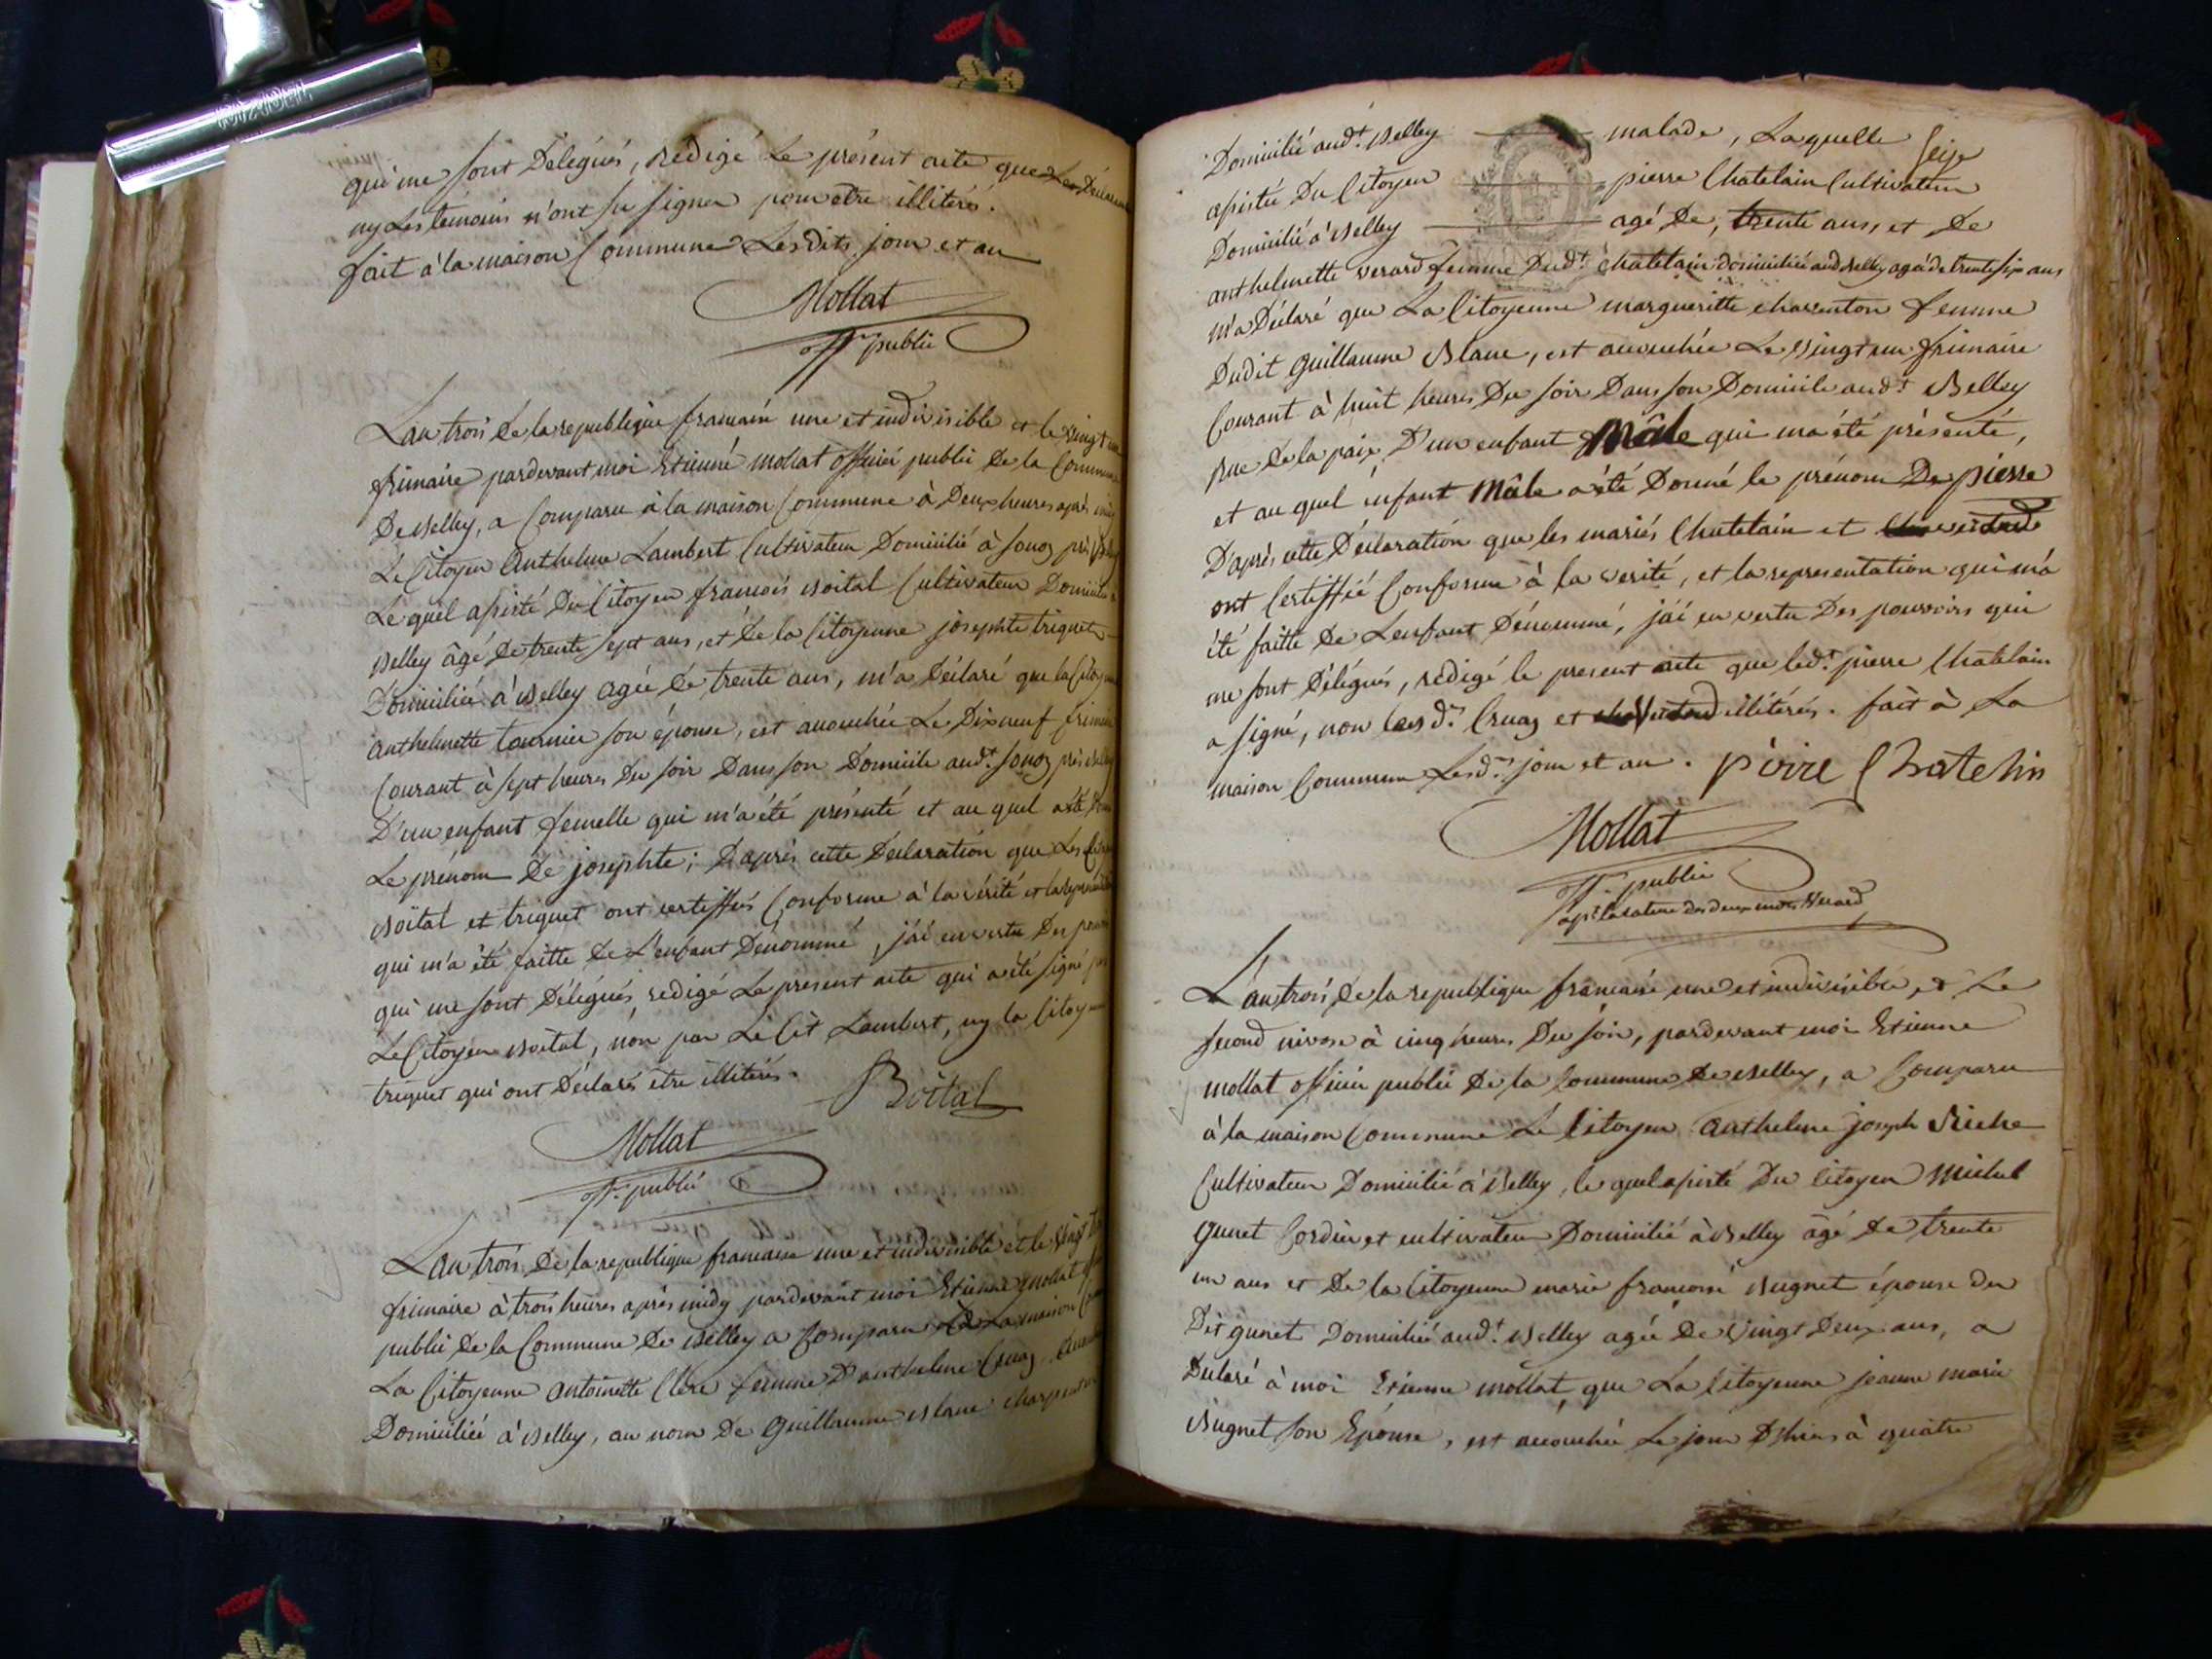 qui me sont Délégués, rédigé le présent acte que les Déclarans
ny les témoins n'ont su signer pour etre illitérés.
fait à la maison Commune Lesdits jour et an
Mollat
off.r public
L'an trois de la republique francaise une et indivisible et le vingt un
frimaire pardevant moi Etienne mollat officier public de la Commune
De Belley, a Comparu à la maison Commune à Deux heures après midy
Le Citoyen Anthelme Lambert Cultivateur Domicilié à Sonoz près Belley
Le quel assisté du Citoyen francois Boital Cultivateur Domicilié à
Belley âgé de trente sept ans, et de la Citoyenne josephte triquet
Domiciliée à Belley agée de trente ans, m'a Déclaré que la Citoyenne
anthelmette tournier son épouse, est accouchée Le Dix neuf frimaire
Courant à sept heures du soir Dans son Domicile aud.t Sonoz près Belley
D'un enfant femelle qui m'a été présenté et au quel a été Donné
Le prénom De josephte; D'après cette Déclaration que Les
Boital et triquet ont certiffiés Conforme à la vérité et la représentation
qui m'a été faitte de L'enfant Dénommé, j'ai en vertu Des pouvoirs
qui me sont Délégués, redigé Le present acte qui a été signé par
Le Citoyen Boital, non par Le Cit Lambert, ny la Citoyenne
triquet qui ont Déclarés être illitérés.
Boital
Mollat
off.r public
L'an trois De la republique francaise une et indivisible et le vingt
frimaire à trois heures après midy pardevant moi Etienne mollat officier
public de la Commune De Belley a Comparu à La maison Commune
La Citoyenne antoinette Clerc femme D'anthelme Cruaz
Domiciliée à Belley, au nom De Guillaume Blanc charpentier
Domicilié aud.t Belley malade, Laquelle
assistée Du Citoyen pierre Chatelain Cultivateur
Seize
Domicilié à Belley agé De, trente ans, et De
anthelmette verard femme Dud.t Chatelain domiciliée aud Belley agée de trente six ans
m'a Déclaré que La Citoyenne margueritte charenton femme
Dudit Guillaume Blanc, est accouchée Le vingt un frimaire
Courant à huit heures Du soir Dans son Domicile aud.t Belley
Rue De la paix, D'un enfant Mâle qui m'a été présenté,
et au quel enfant Mâle a été Donné le prénom De pierre
D'après cette Déclaration que les mariés Chatelain et verard
ont Certiffié Conforme à la verité, et la representation qui m'a
été faitte De L'enfant Dénommé, j'ai en vertu Des pouvoirs qui
me sont Délégués, rédigé le present acte que led.t pierre Chatelain
a signé, non lesd.s Cruaz et verard illitérés. fait à La
maison Commune Lesd.s jour et an. pierre Chatelin
Mollat
off.r public
L'an trois De la republique francaise une et indivisible, et Le
second nivose à cinq heures Du soir, pardevant moi Etienne
mollat officier public De la Commune De Belley, a Comparu
à la maison Commune Le Citoyen Anthelme joseph
Cultivateur Domicilié à Belley, le quel assisté Du Citoyen Michel
gunet Cordier et cultivateur Domicilié à Belley âgé De trente
un ans et De la Citoyenne marie francoise Bugnet épouse du
Dit gunet Domiciliée aud.t Belley agée De vingt Deux ans, a
Déclaré à moi Etienne mollat, que La Citoyenne jeanne marie
Bugnet son Epouse, est accouchée Le jour D'hier à quatre